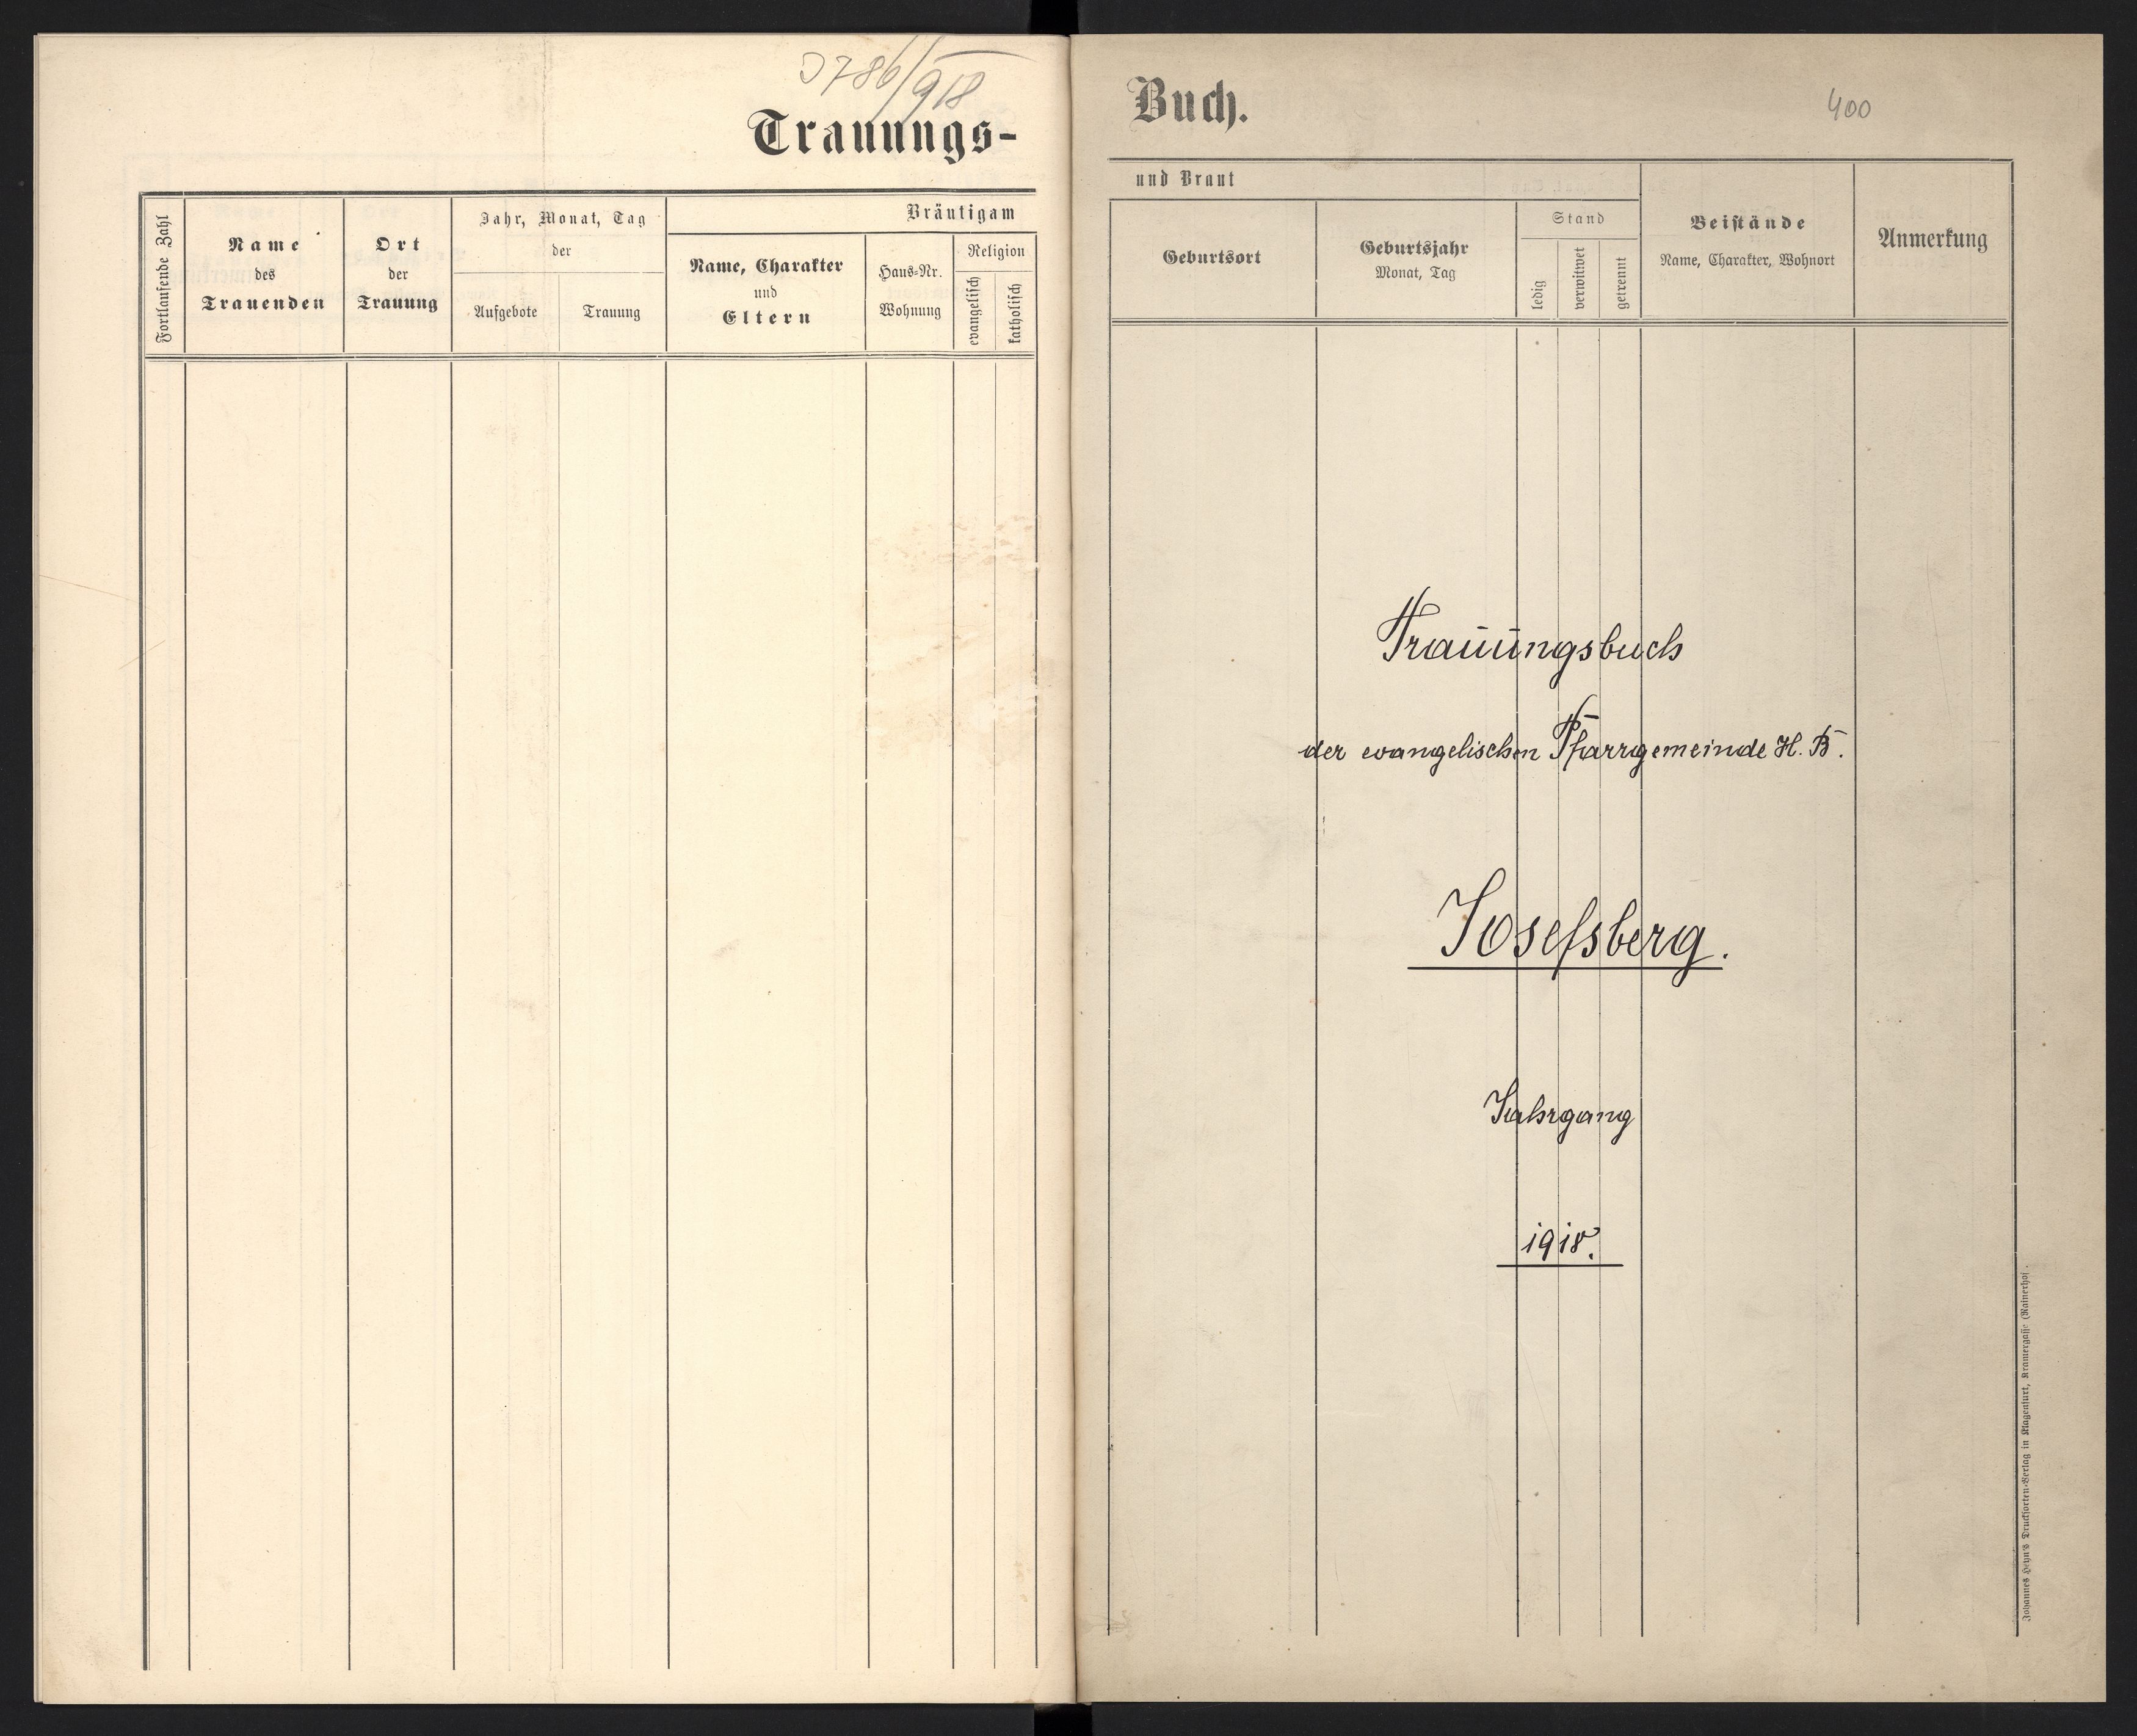 3786/918
Trauungs-
Fortlaufende Zahl
Name
des
Trauenden
Ort
der
Trauung
Jahr, Monat, Tag
der
Aufgebote
Trauung
Bräutigam
Name, Charakter
und
Eltern
Haus-Nr.
Wohnung
Religion
evangelisch
katholisch
Buch.
400
und Braut
Geburtsort
Geburtsjahr
Monat, Tag
Stand
ledig
verwitwet
getrennt
Beistände
Name, Charakter, Wohnort
Anmerkung
Trauungsbuch
der evangelischen Pfarrgemeinde H. B.
Josefsberg.
Jahrgang
1918.
Johannes Heyn's Drucksorten-Verlag in Klagenfurt, Kramergasse (Rainerhof.